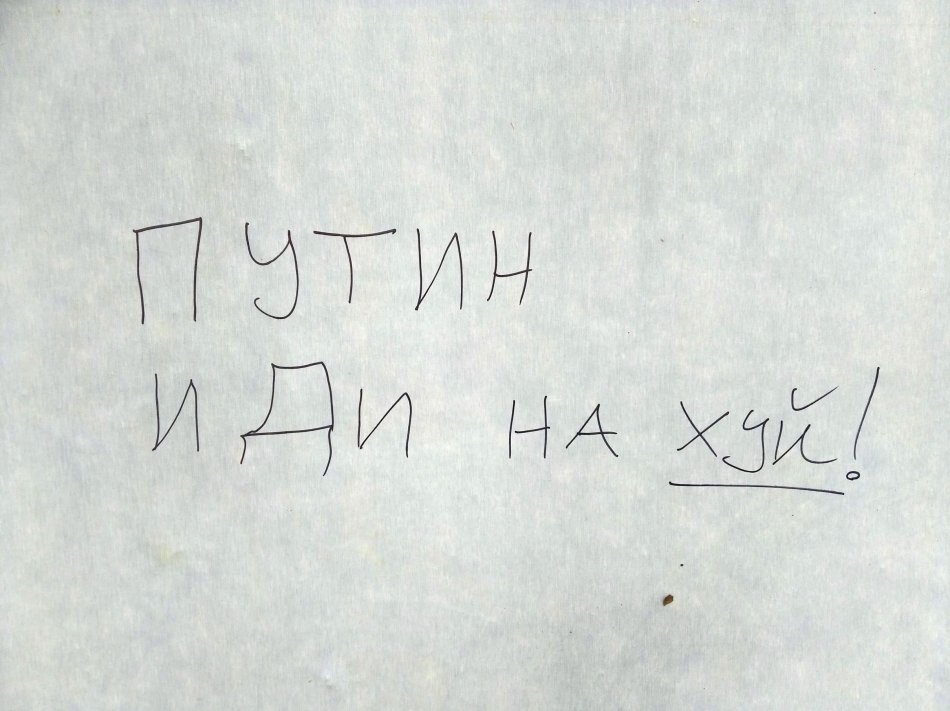 ПУТИН
ИДИ НА ХУЙ!